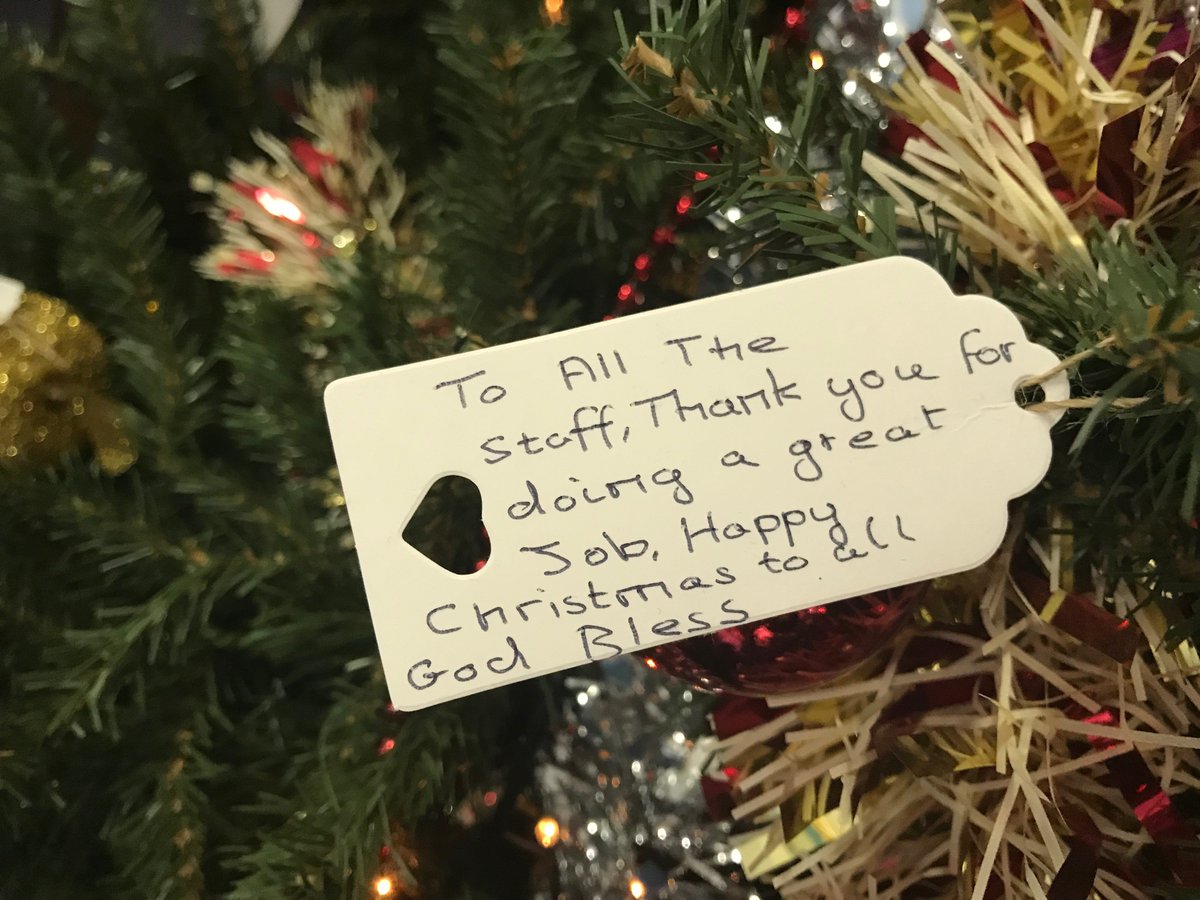 To All The
Staff, Thank you for
doing a great
Job, Happy
Christmas to all
God Bless